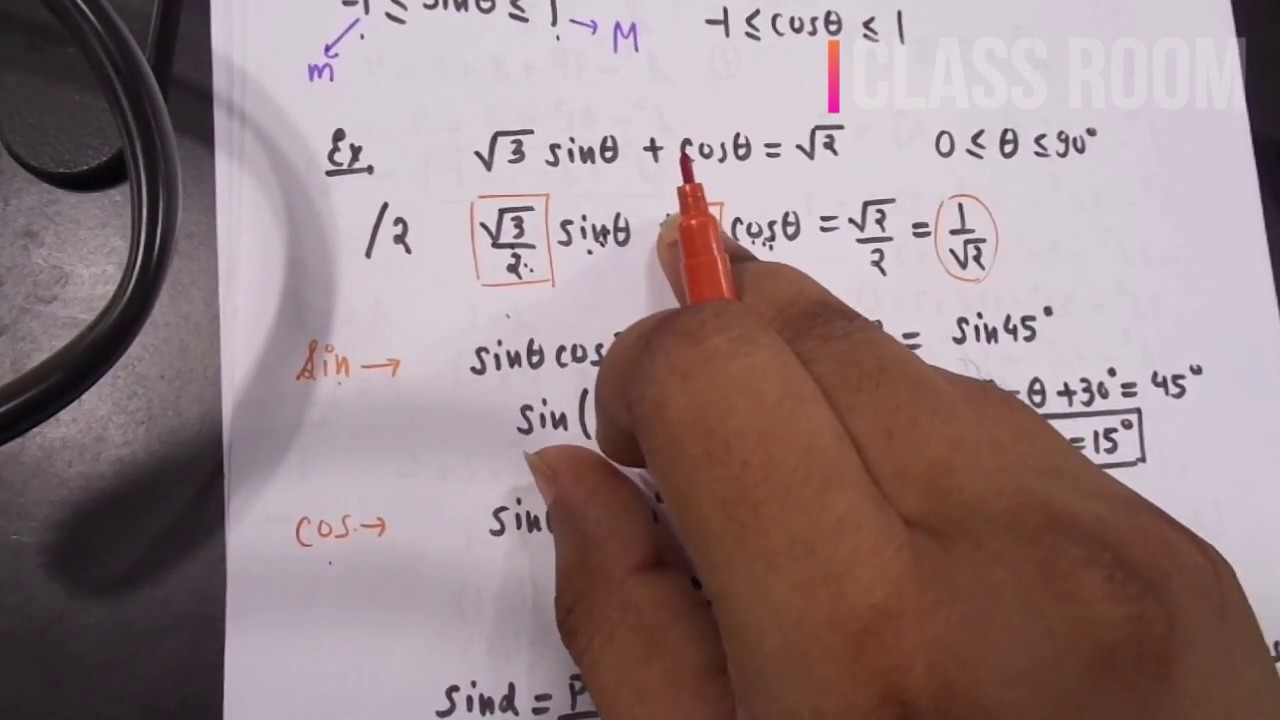 -1 ≤ sinθ ≤ 1 → M -1 ≤ cosθ ≤ 1
m
CLASS ROOM
Ex. √3 sinθ + cosθ = √2 0 ≤ θ ≤ 90°
/2 √3/2 sinθ cosθ = √2/2 = 1/√2
Sin → sinθ cos = sin45°
sin( θ + 30° = 45°
= 15°
cos → sin
sinα = P